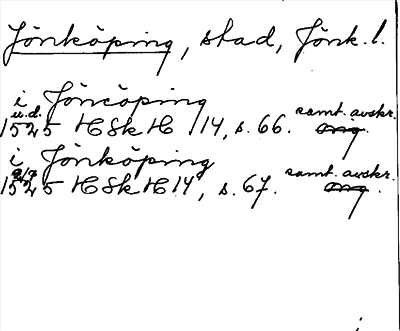 Jönköping, stad, Jönk. l.
i Jöncöping
u.d. samt. avskr.
1525 HSkH 114, s. 66. orig.
i Jönköping
2/7 samt. avskr.
1525 HSkH 14, s. 67. orig.
i